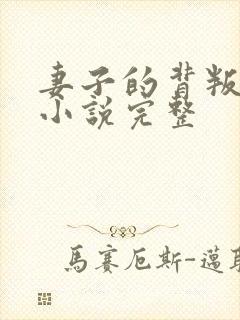 妻子的背叛
小說完整
馬賽厄斯-邁